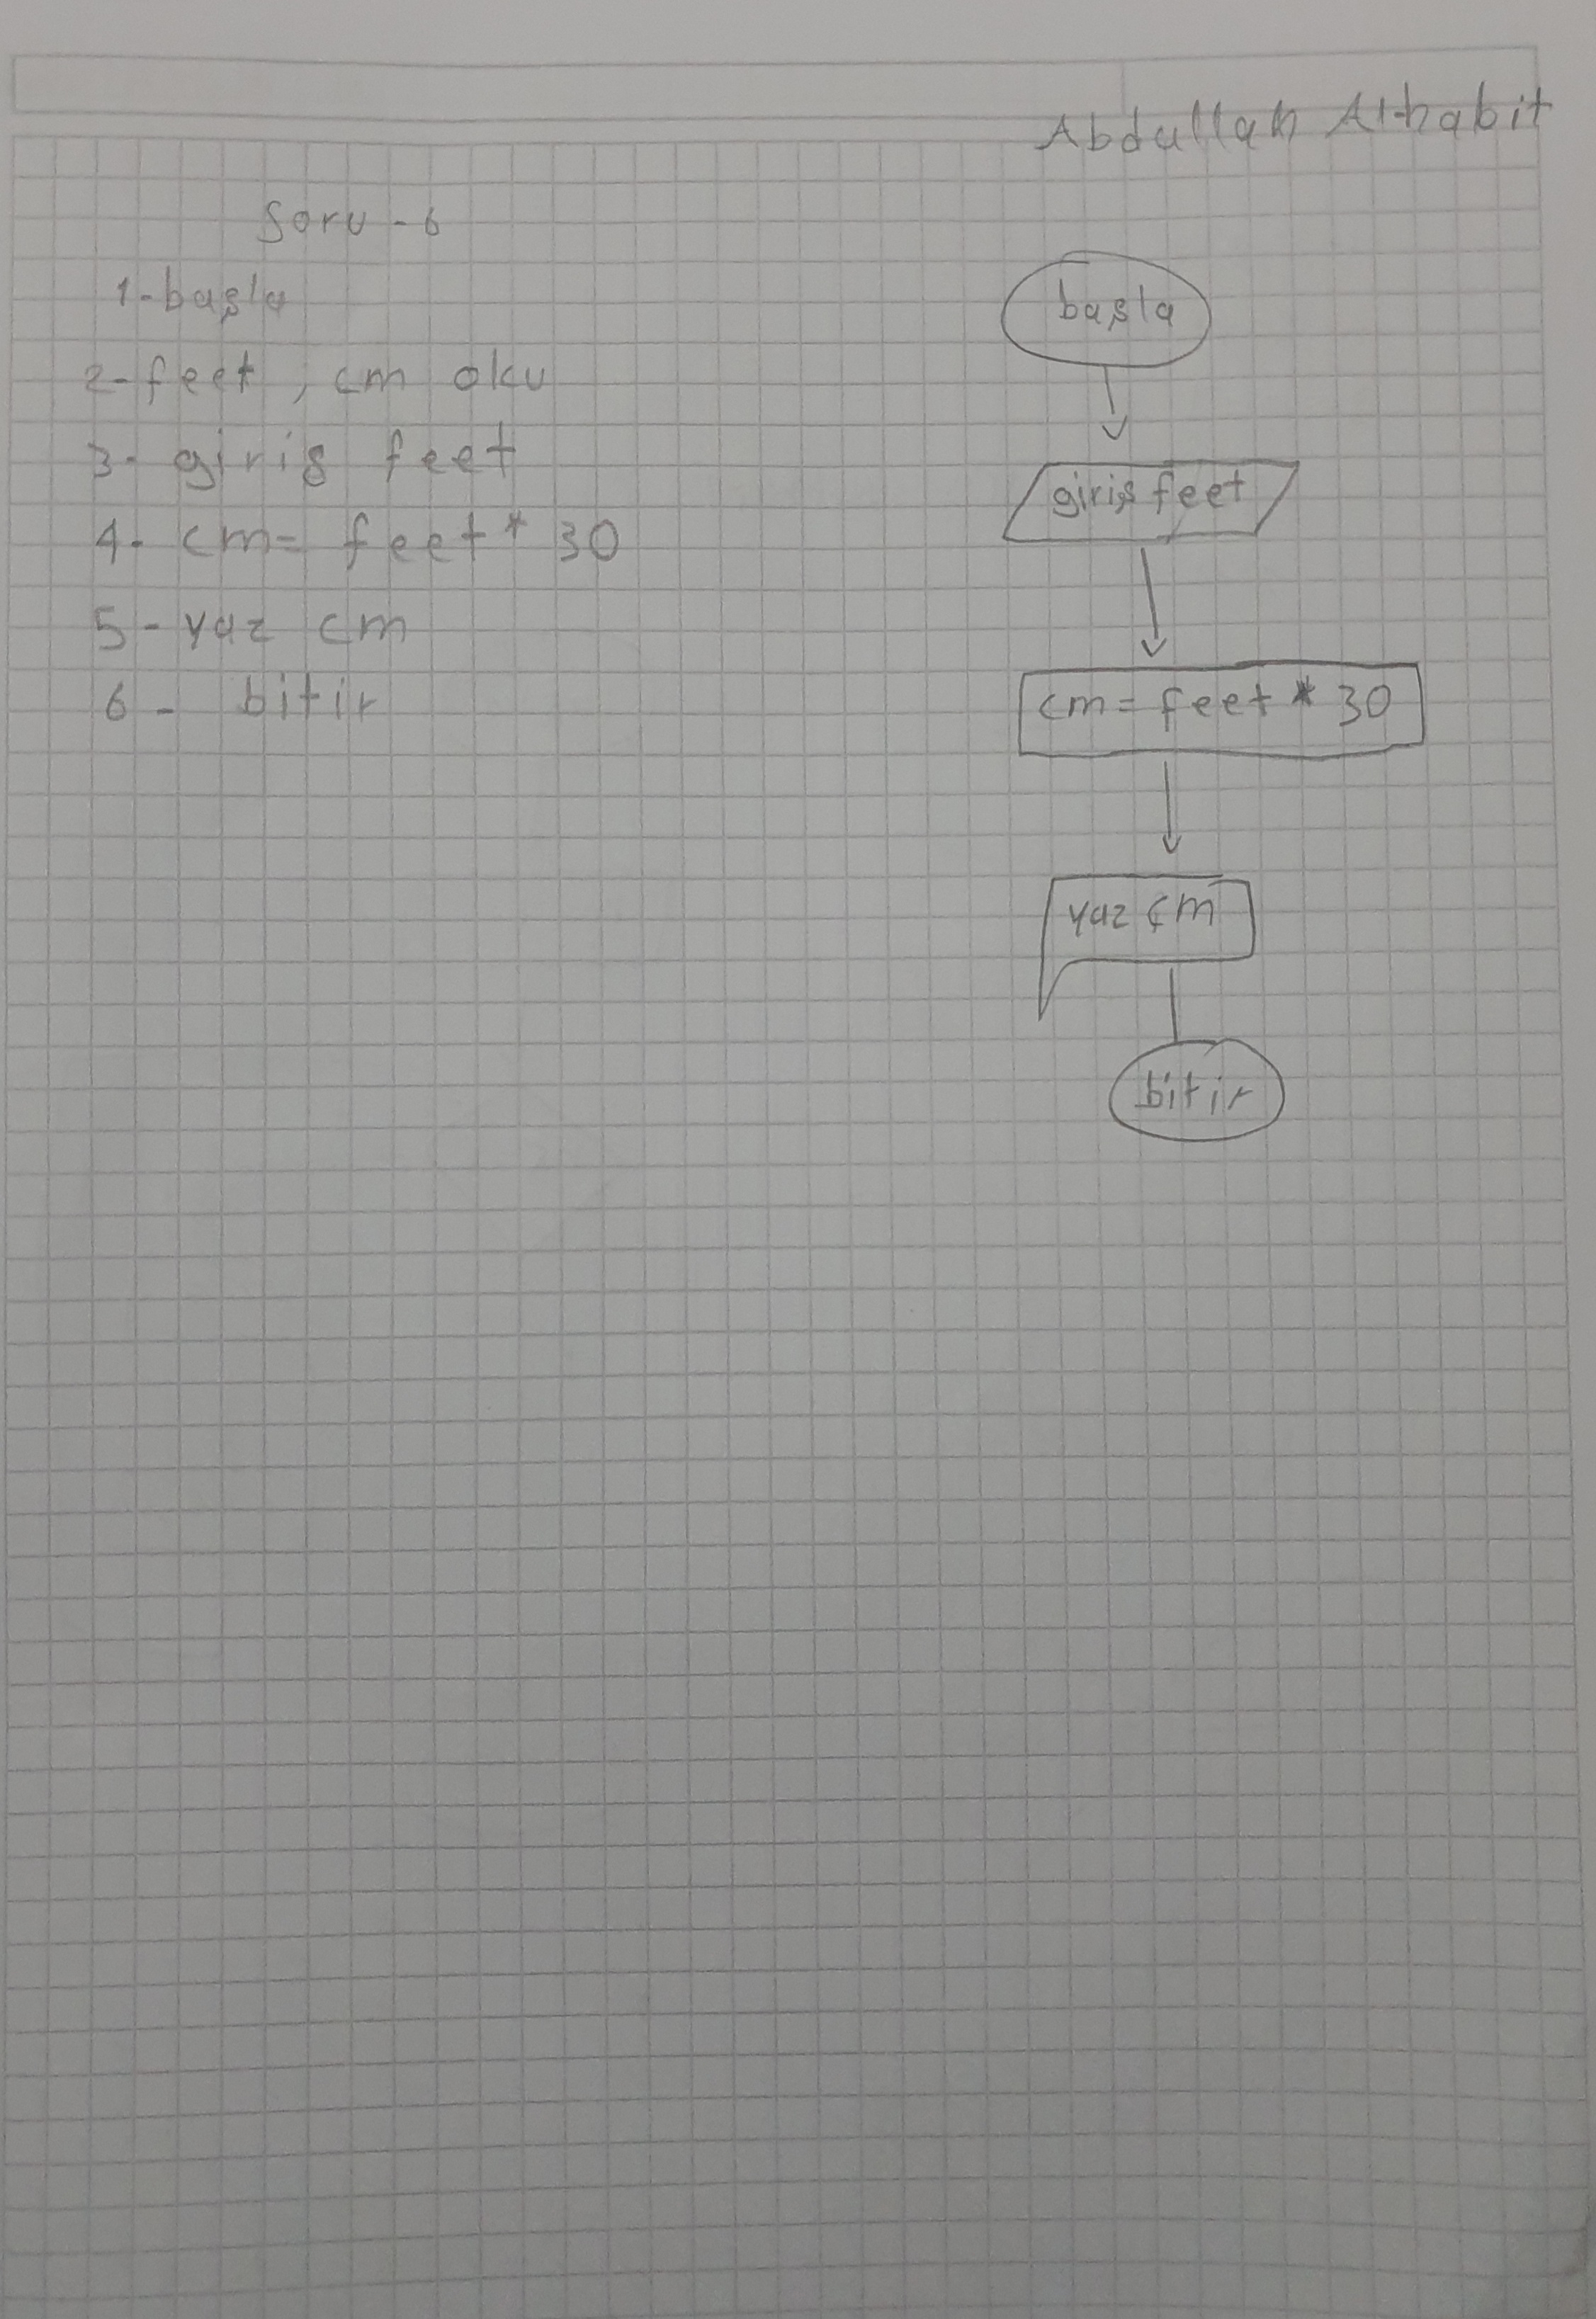 Abdullah Althabit
Soru - 6
1-başla
2-feet, cm oku
3- giriş feet
4- cm= feet * 30
5- yaz cm
6- bitir
başla
giriş feet
cm= feet * 30
yaz cm
bitir